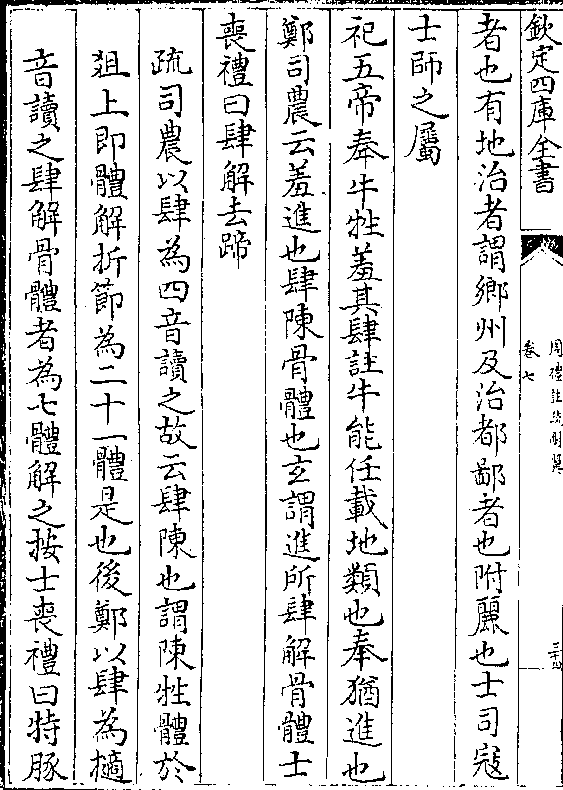 欽定四庫全書
周禮註疏刪翼
卷七
三十四
者也有地治者謂鄉州及治都鄙者也附麗也士司寇
士師之屬
祀五帝奉牛牲羞其肆註牛能任載地類也奉猶進也
鄭司農云羞進也肆陳骨體也玄謂進所肆解骨體士
喪禮曰肆解去蹄
疏司農以肆為四音讀之故云肆陳也謂陳牲體於
俎上即體解折節為二十一體是也後鄭以肆為擿
音讀之肆解骨體者為七體解之按士喪禮曰特豚